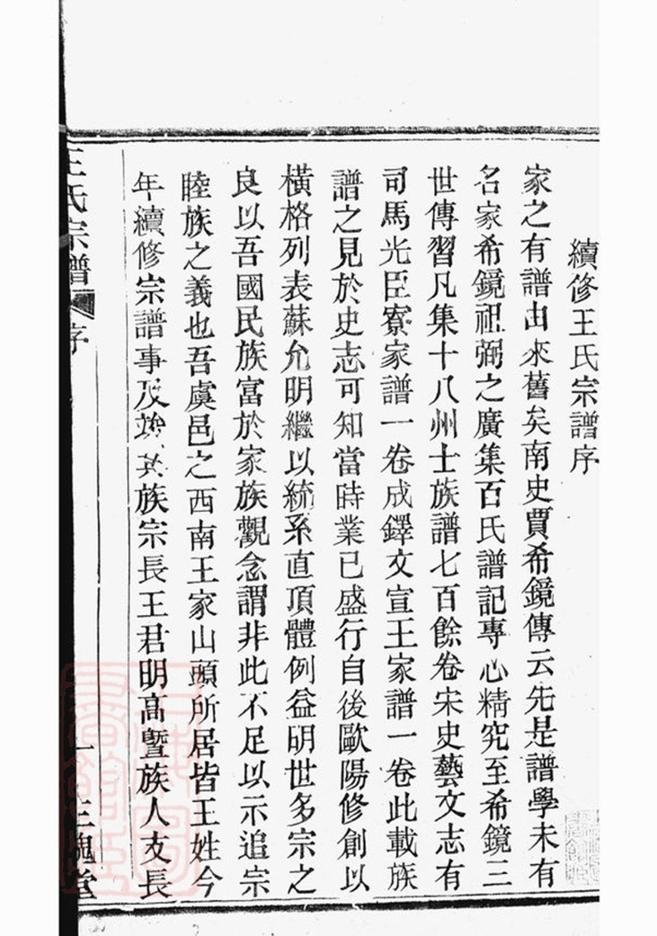 續修王氏宗譜序
家之有譜由來舊矣南史賈希鏡傳云先是譜學未有
名家希鏡祖弼之廣集百氏譜記專心精究至希鏡三
世傳習凡集十八州士族譜七百餘卷宋史藝文志有
司馬光臣寮家譜一卷成鐸文宣王家譜一卷此載族
譜之見於史志可知當時業已盛行自後歐陽修創以
橫格列表蘇允明繼以統系直頂體例益明世多宗之
良以吾國民族富於家族觀念謂非此不足以示追宗
睦族之義也吾虞邑之西南王家山頭所居皆王姓今
年續修宗譜事及竣其族宗長王君明高暨族人友長
王氏宗譜
序
一
三槐堂